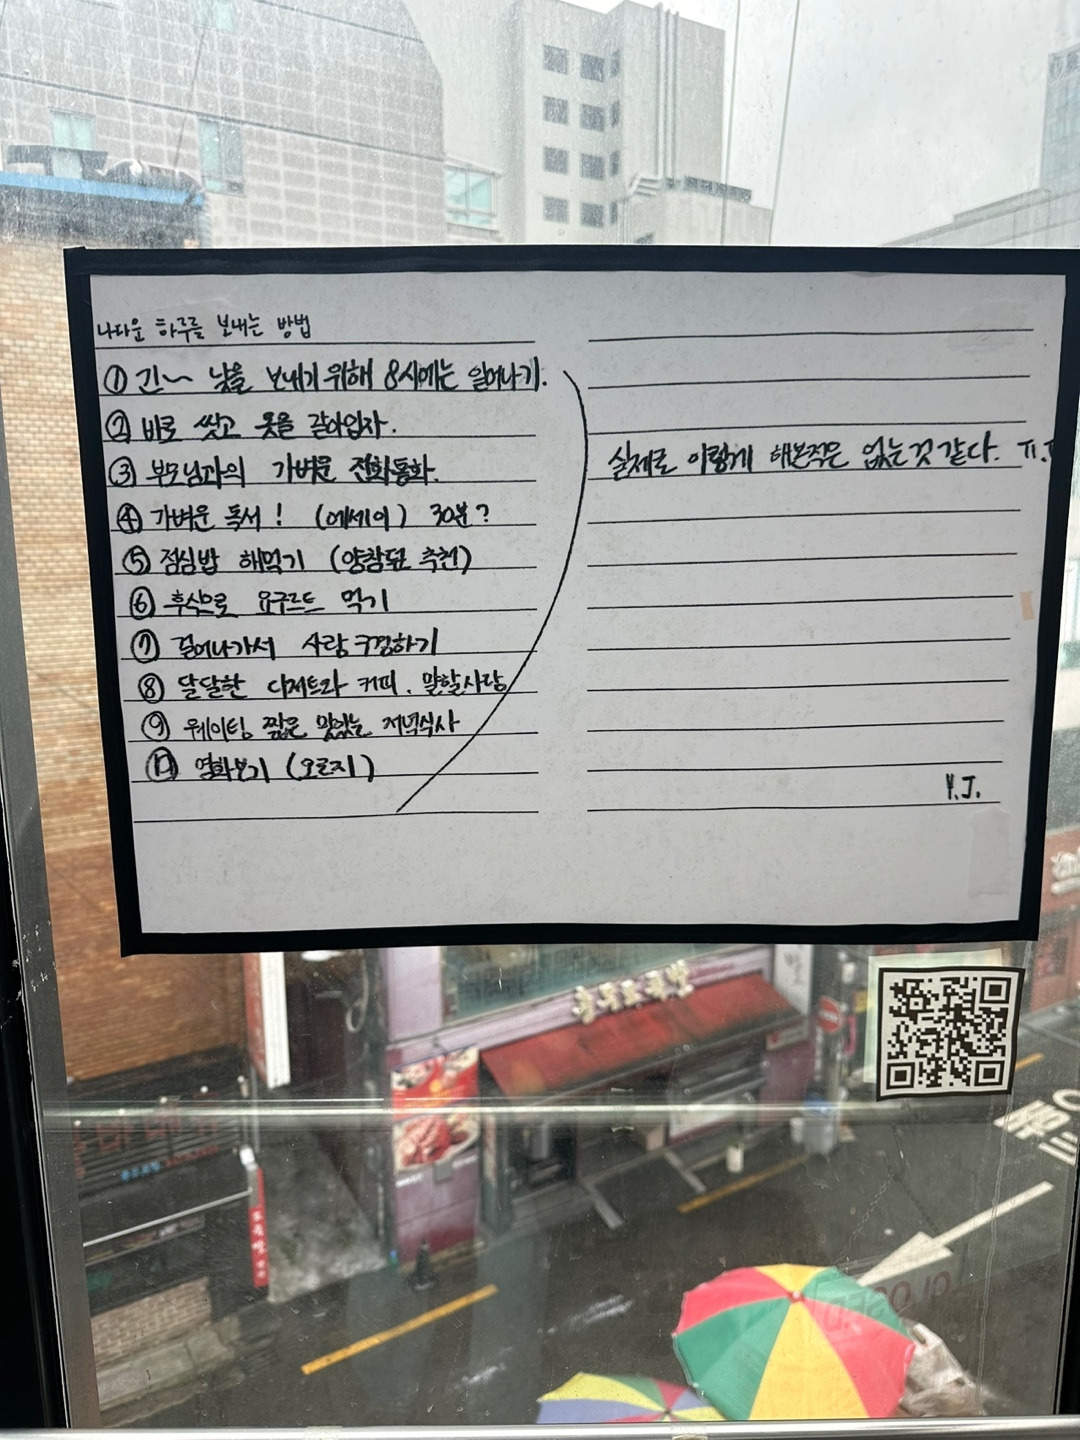 나다운 하루를 보내는 방법
① 긴~ 낮을 보내기 위해 8시에는 일어나기.
② 바로 씻고 옷을 갈아입자.
③ 부모님과의 가벼운 전화통화.
④ 가벼운 독서! (에세이) 30분?
⑤ 점심밥 해먹기 (양참돼 추천)
⑥ 후식으로 요구르트 먹기
⑦ 걸어나가서 사람구경하기
⑧ 달달한 디저트와 커피. 말할사람
⑨ 웨이팅 짧은 맛있는 저녁식사
⑩ 영화보기 (오르지)
실제로 이렇게 해본적은 없는것 같다. ㅠ.ㅠ
Y.J.